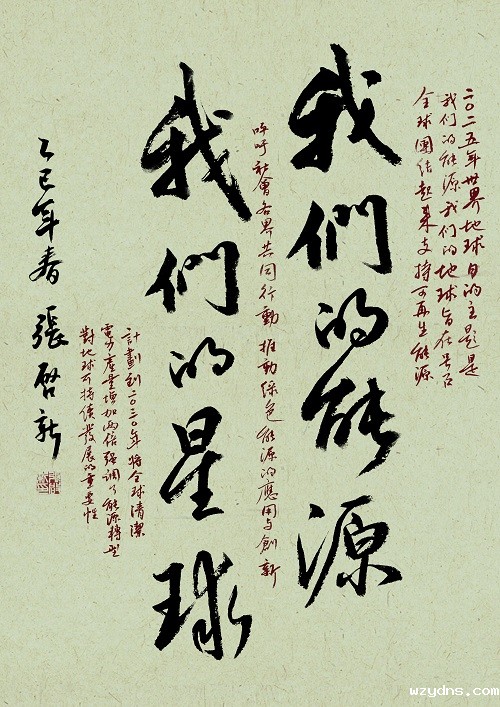 二〇二五年世界地球日的主題是
我们的能源我们的地球旨在号召
全球團结起来支持可再生能源
我們的能源
呼吁社會各界共同行動推動绿色能源的應用与創新
我們的星球
計劃到二〇三〇年將全球清潔
電力產量增加两倍强調了能源轉型
對地球可持續發展的重要性
乙巳年春 張啓新
wzydns.com